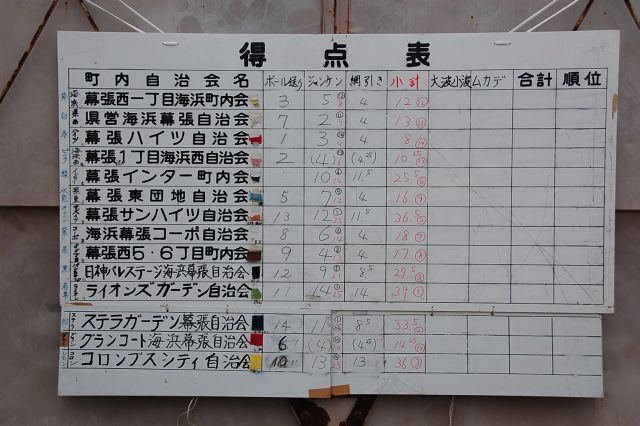 得点表
町内自治会名 ボール送り ジャンケン 綱引き 小計 大波小波 ムカデ 合計 順位
幕張西一丁目海浜町内会 3 5 4 12
県営海浜幕張自治会 7 2 4 13
幕張ハイツ自治会 1 3 4 8
幕張1丁目海浜西自治会 2 (4) (4.25) 10.25
幕張インター町内会 10 11.5 25.5
幕張東団地自治会 5 7 4 16
幕張サンハイツ自治会 13 12 11.5 36.5
海浜幕張コーポ自治会 8 6 4 18
幕張西5・6丁目町内会 9 4 4 17
日神パレステージ海浜幕張自治会 12 9 8.5 29.5
ライオンズガーデン自治会 11 14 14 39
ステラガーデン幕張自治会 14 11 8.5 33.5
グランコート海浜幕張自治会 6 (4) (4.25) 14.25
コロンブスシティ自治会 10 13 13 36